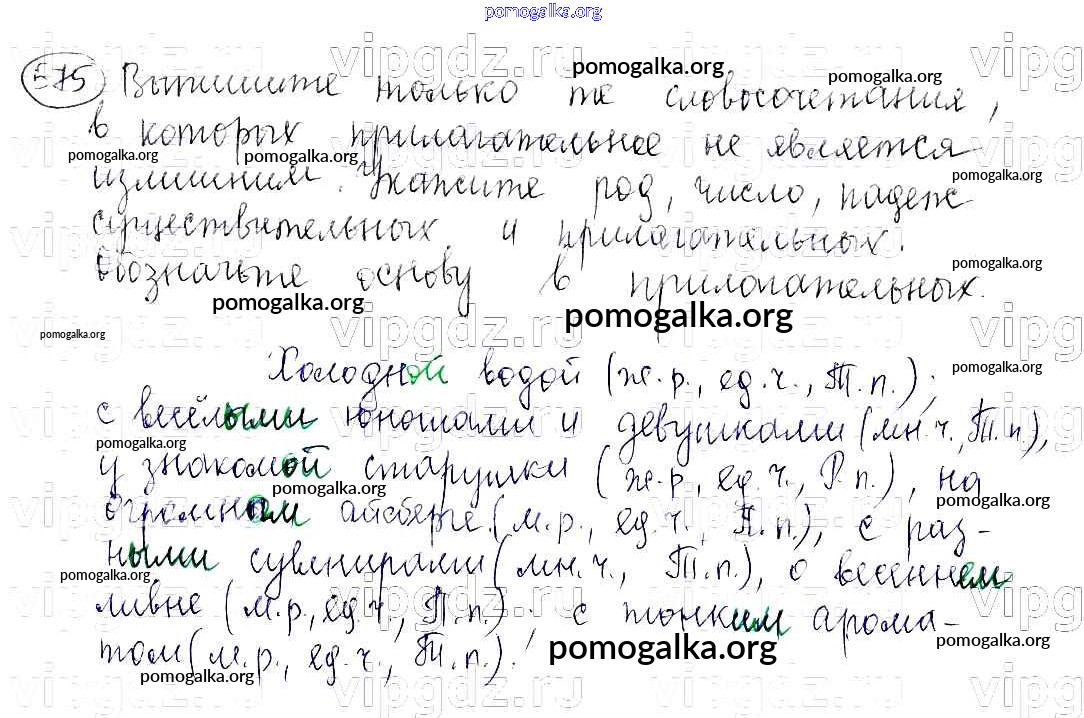 pomogalka.org
575 Выпишите только те словосочетания,
в которых прилагательное не является
излишним. Укажите род, число, падеж
существительных и прилагательных.
Обозначьте основу в прилагательных.
Холодной водой (ж.р., ед.ч., Т.п.);
с весёлыми юношами и девушками (мн.ч., Т.п.),
у знакомой старушки (ж.р., ед.ч., Р.п.), на
огромном айсберге (м.р., ед.ч., П.п.), с раз-
ными сувенирами (мн.ч., Т.п.), о весеннем
ливне (м.р., ед.ч., П.п.), с тонким арома-
том (м.р., ед.ч., Т.п.).
pomogalka.org
vipgdz.ru